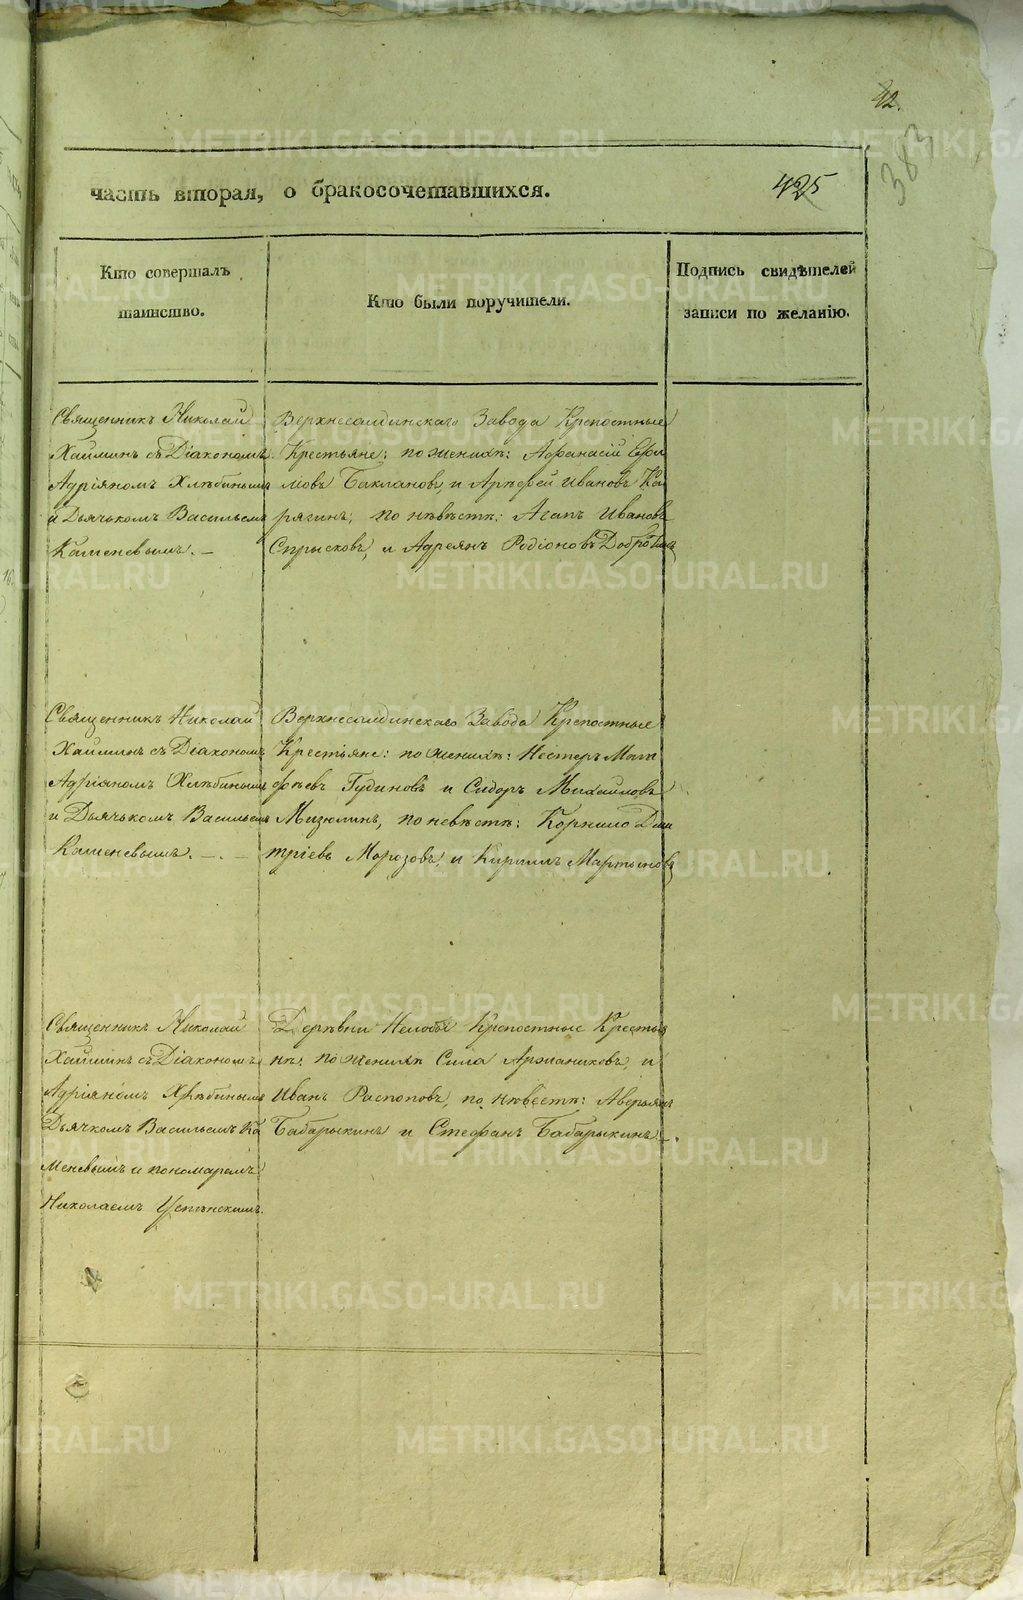 42.
383
часть вторая, о бракосочетавшихся.
425
Кто совершалъ
таинство.
Кто были поручители.
Подпись свидѣтелей
записи по желанію.
Священникъ Николай
Хайминъ съ Діакономъ
Адріяномъ Хлѣбинымъ
и Дьячькомъ Васильемъ
Каменевымъ. –
Верхнесалдинскаго Завода Крепостные
Крестьяне: по женихѣ: Афанасій Ефи
мовъ Баклановъ, и Арефей Ивановъ Ка
рягинъ; по невѣстѣ: Агапъ Ивановъ
Спрысковъ, и Адреянъ Родіоновъ
Священникъ Николай
Хайминъ съ Діакономъ
Адріяномъ Хлѣбинымъ
и Дьячькомъ Васильемъ
Каменевымъ. – . –
Верхнесалдинскаго Завода Крепостные
Крестьяне: по женихѣ: Нестеръ Мат
фѣевъ Гудиновъ и Сидоръ Михайловъ
Мизюлинъ, по невѣстѣ: Корнило Дми
тріевъ Морозовъ, и Кирилъ Мартыновъ
Священникъ Николай
Хайминъ съ Діакономъ
Адріяномъ Хлѣбинымъ
Дьячкомъ Васильемъ Ка
меневымъ и пономаремъ
Николаемъ Успѣнскимъ.
Деревни Нелобы Крепостные Крестья
не: по женихѣ Сила Аржаниковъ, и
Иванъ Распоповъ, по невѣстѣ: Аверьянъ
Бабарыкинъ и Стефанъ Бабарыкинъ –.
METRIKI.GASO-URAL.RU